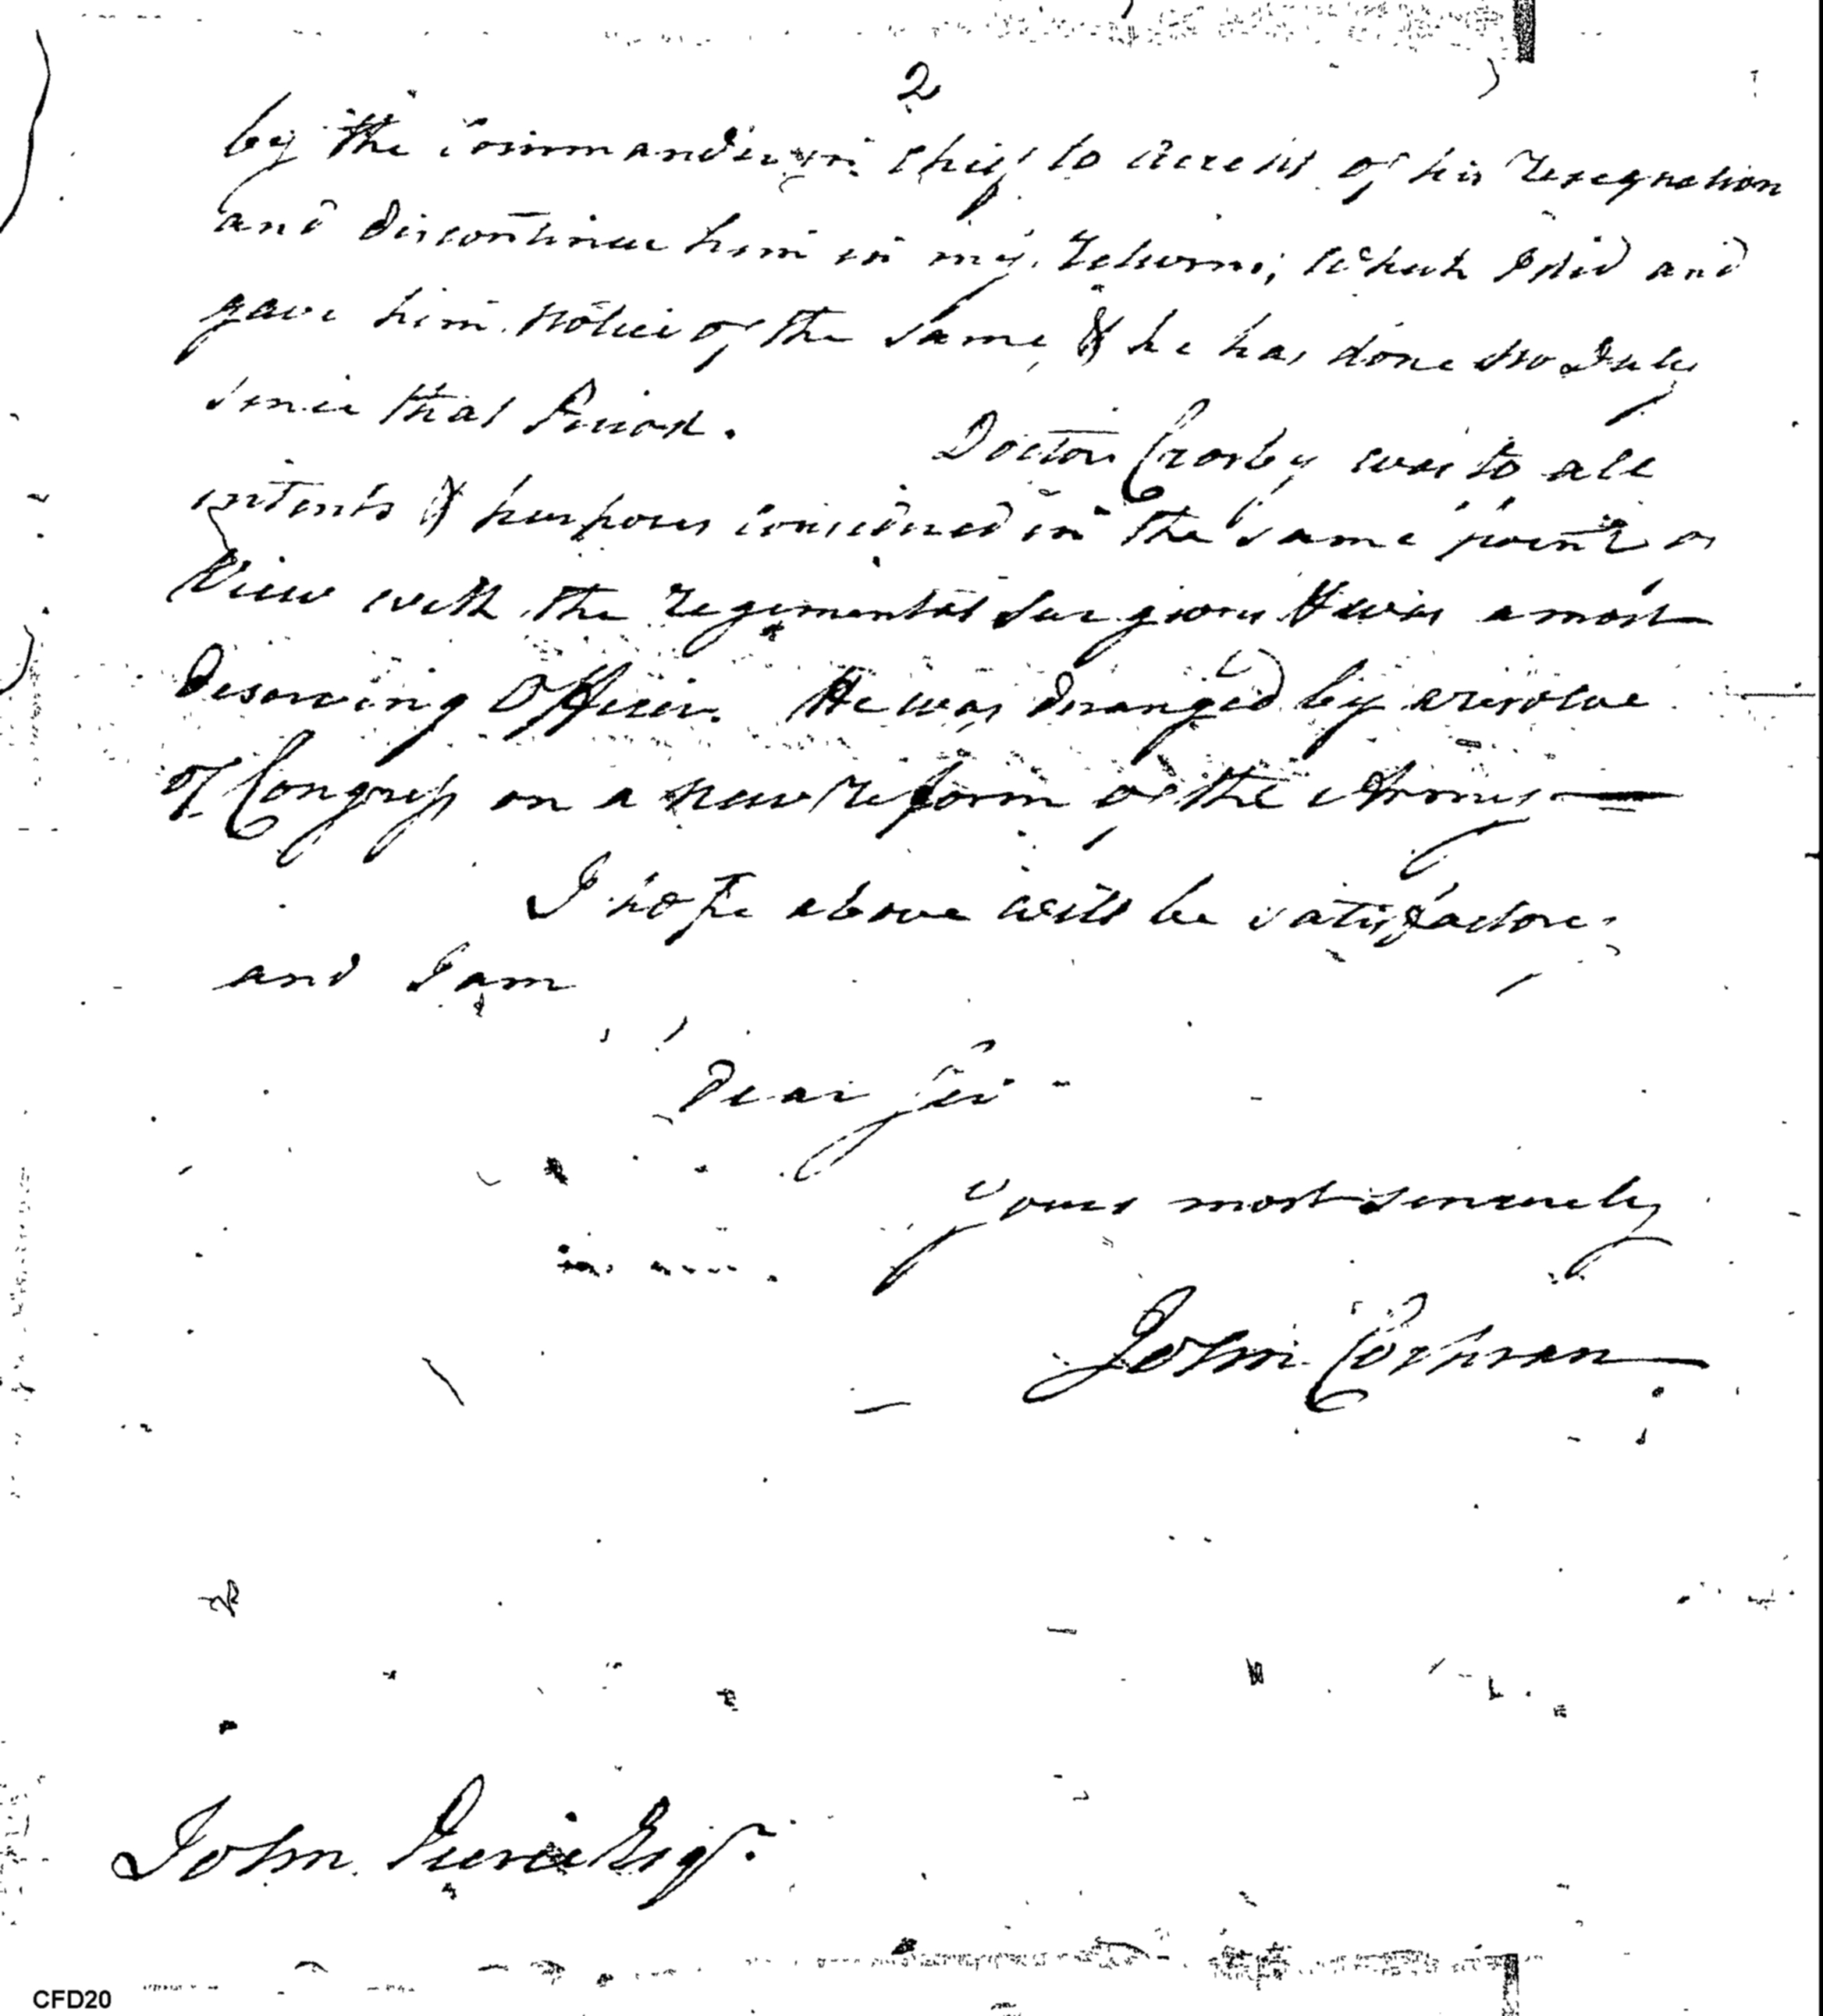 2
by the Commander in Chief to accept of his resignation
and discontinue him in my Returns; which I did and
gave him notice of the Same, & he has done no Duty
since that Period.
Doctor Crosby was to all
intents & purposes considered in the same point of
View with the regimental Surgeons & was a most
Deserving Officer. He was deranged by a resolve
of Congress on a new reform of the Army
I hope above will be satisfactory
and I am
Dear Sir
yours most sincerely
John Cochran
John Pierce Esqr.
CFD20